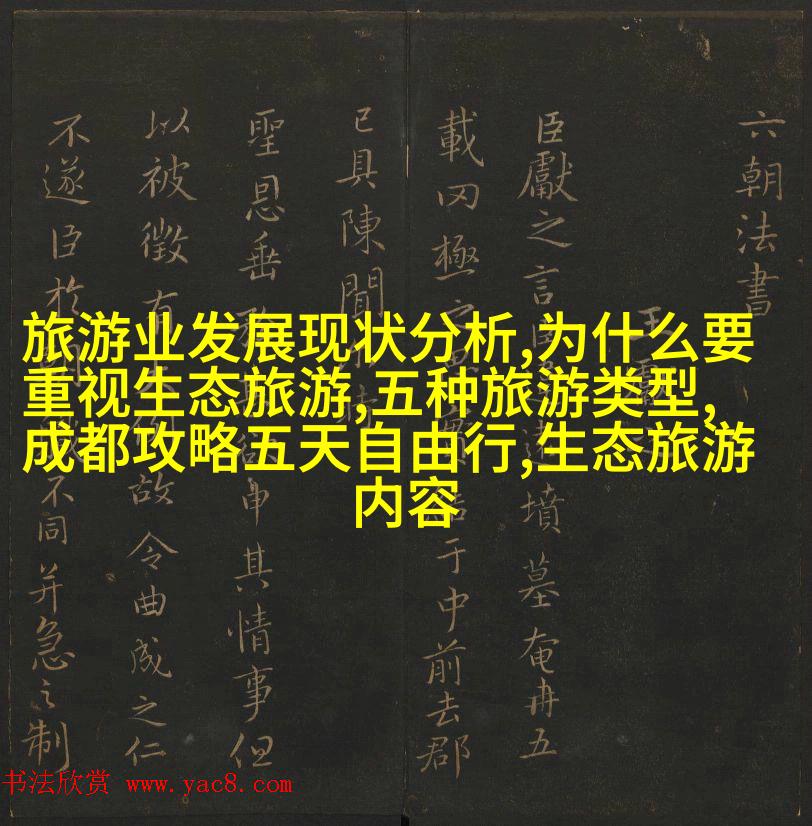 六朝法書
王
臣獻之言
墳墓奄冉五
載罔極
于中前去郡
已具陳聞
聖恩垂
申其情事但
以被徵有
故令曲成之仁
不遂臣於
不同并急之制
旅游业发展现状分析,为什么要
重视生态旅游,五种旅游类型,
成都攻略五天自由行,生态旅游
内容
书法欣赏 www.yac8.com